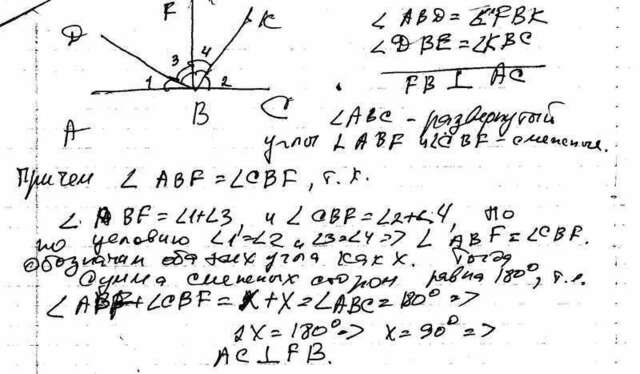 F
K
D
3 4
1 2
A B C
∠ ABD = ∠ FBK
∠ DBE = ∠KBC
FB ⊥ AC
∠ABC - развернутый
углы ∠ ABF и ∠CBF - смежные.
Причем ∠ ABF = ∠CBF, т. к.
∠ ABF = ∠1+∠3, и ∠ CBF = ∠2+∠4, но
по условию ∠1=∠2 и ∠3=∠4 => ∠ ABF = ∠CBF.
Обозначим оба этих угла как x. Тогда
Сумма смежных сторон равна 180°, т.е.
∠ ABF + ∠CBF = X + X = ∠ABC = 180° =>
2X = 180° => X = 90° =>
AC ⊥ FB.